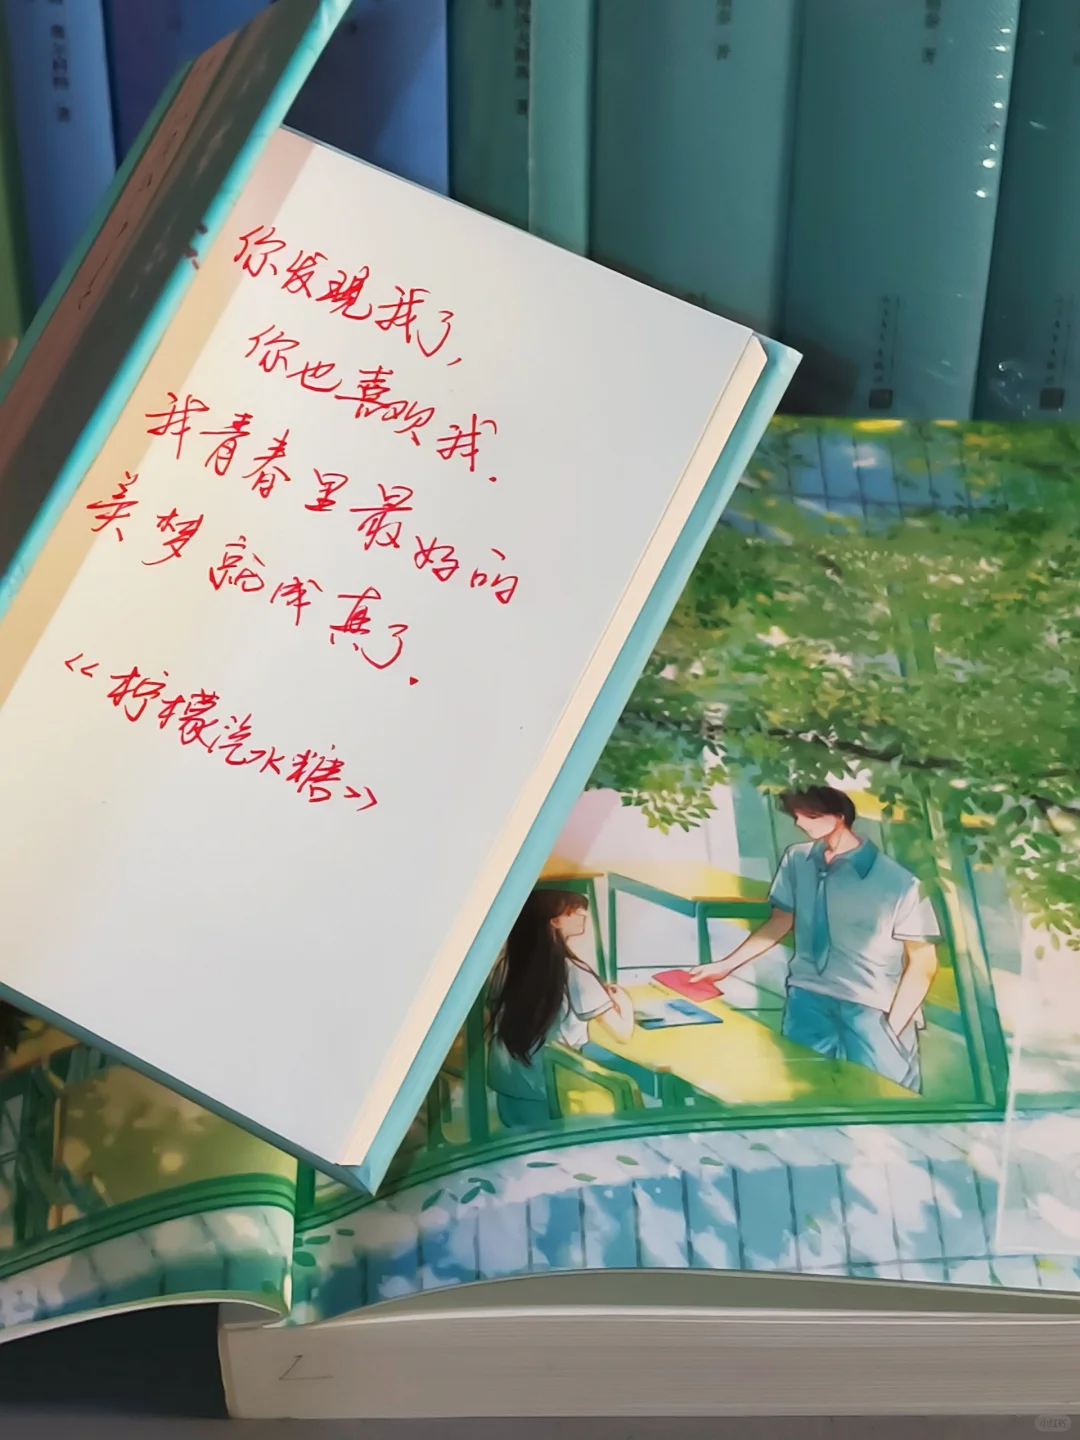 你发现我了,
你也喜欢我.
我青春里最好的
美梦就成真了.
《柠檬汽水糖》
著
著
著
小红书